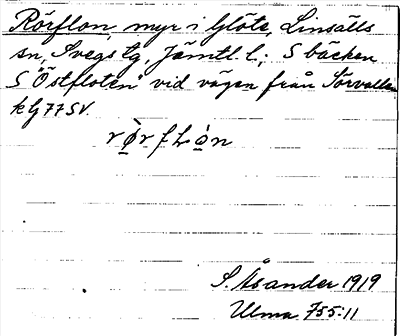 Rörflon, myr i Glöte, Linsälls
sn, Svegs tg, Jämtl. l.; S bäcken
S "Östfloten" vid vägen från Sörvallen
kbl 77 SV.
rø̀rfLòn
S. Åsander 1919
Ulma 755:11